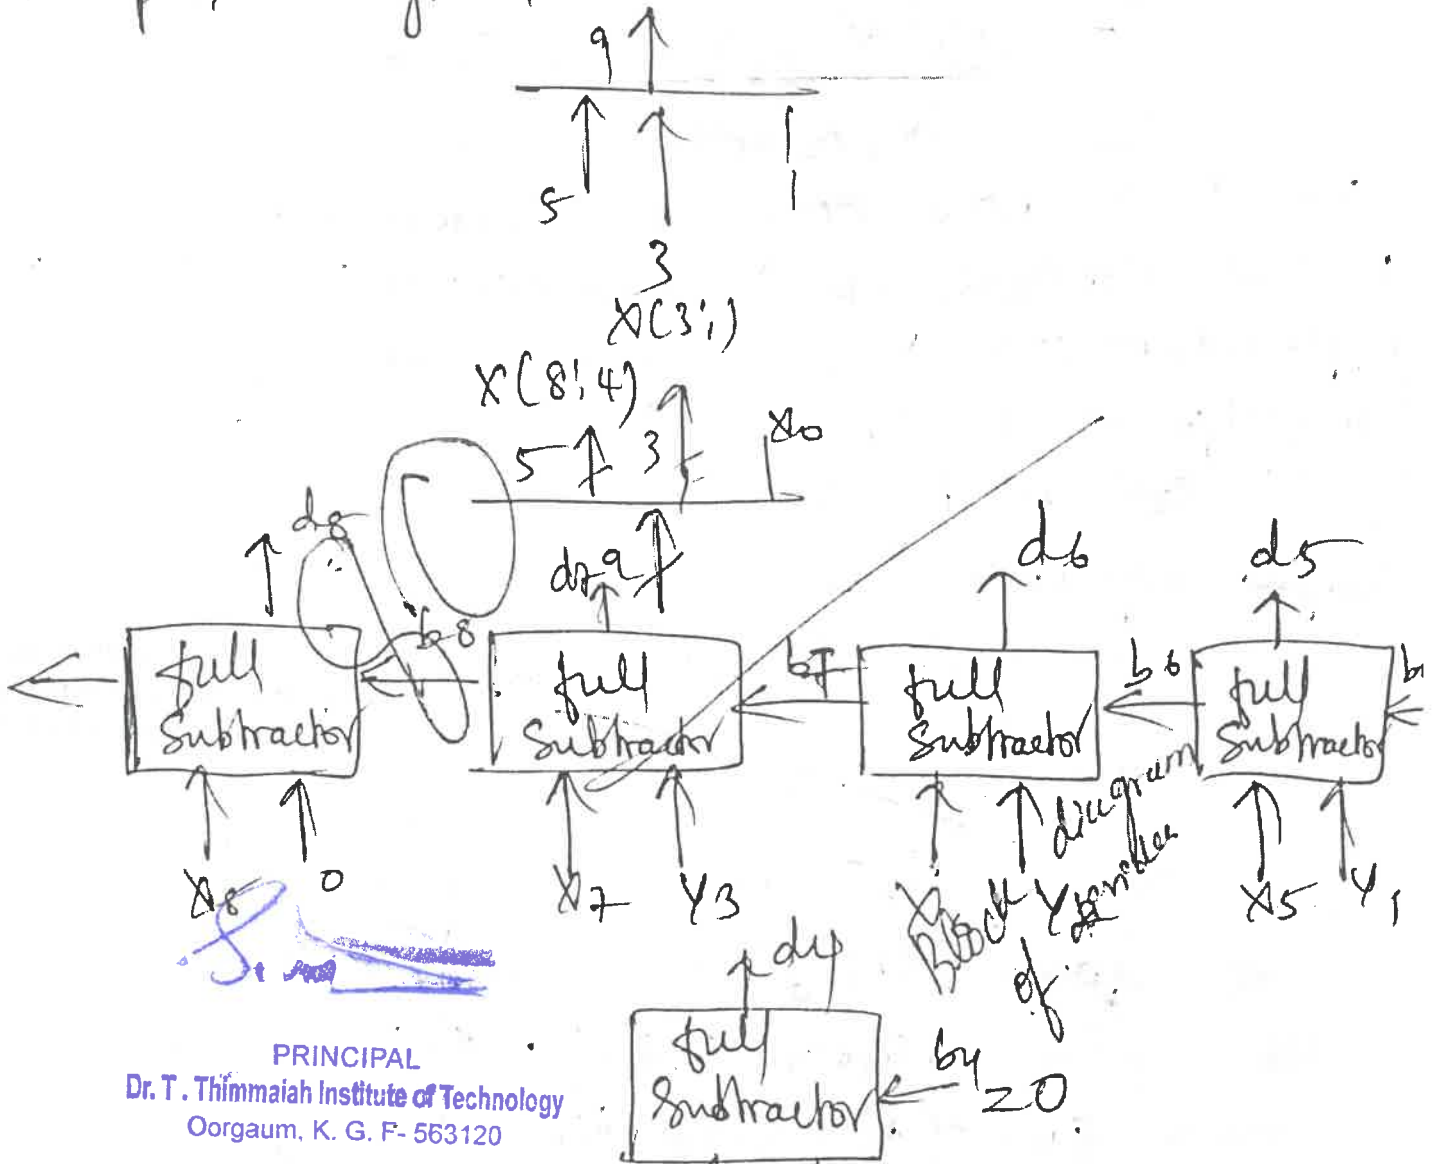 9
5
1
1
3
X(3:1)
X(8:4)
5
3
X0
d8
d7
9
d6
d5
b8
b7
b6
full Subtractor
full Subtractor
full Subtractor
full Subtractor
X8
0
X7
Y3
X5
Y1
Block diagram
of
d4
full Subtractor
b4
=0
PRINCIPAL
Dr. T. Thimmaiah Institute of Technology
Oorgaum, K. G. F- 563120